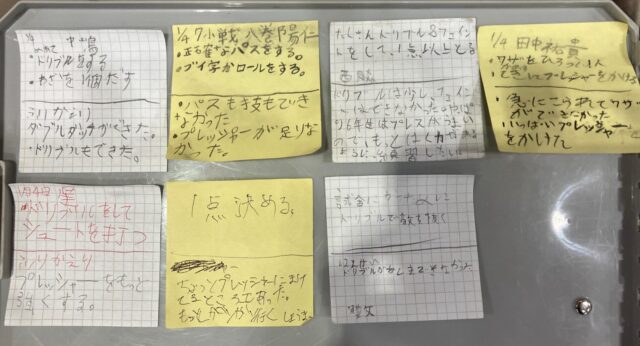 1/4 中嶋
・ドリブルをする
・わざを1個だす
ふりかえり
ダブルタッチができた。
・ドリブルもできた。
1/4 7小戦 八巻陽仁
・正確なパスをする。
・ブイ字かロールをする。
・パスも技もでき
なかった
・プレッシャーが足りな
かった。
たくさんドリブル&フェイン
トをして、1点以上とる
西脇
ドリブルは少し、フェイン
トはできなかった。やっぱ
り6年生はプレスがうまい
のでもっとはやく
1/4 田中祐貴
プレッシャーをかける
・急にこられてワザ
ができなかった
いっぱいプレッシャー
をかけた
1月4日
ドリブルをして
シュートを打つ
ふりかえり
プレッシャーをもっと
強くする。
1点決める。
ちょっとプレッシャーにまけ
てるところもあった。
もっとガツガツ行く
試合に
ドリブルで敵を抜く
ドリブルが